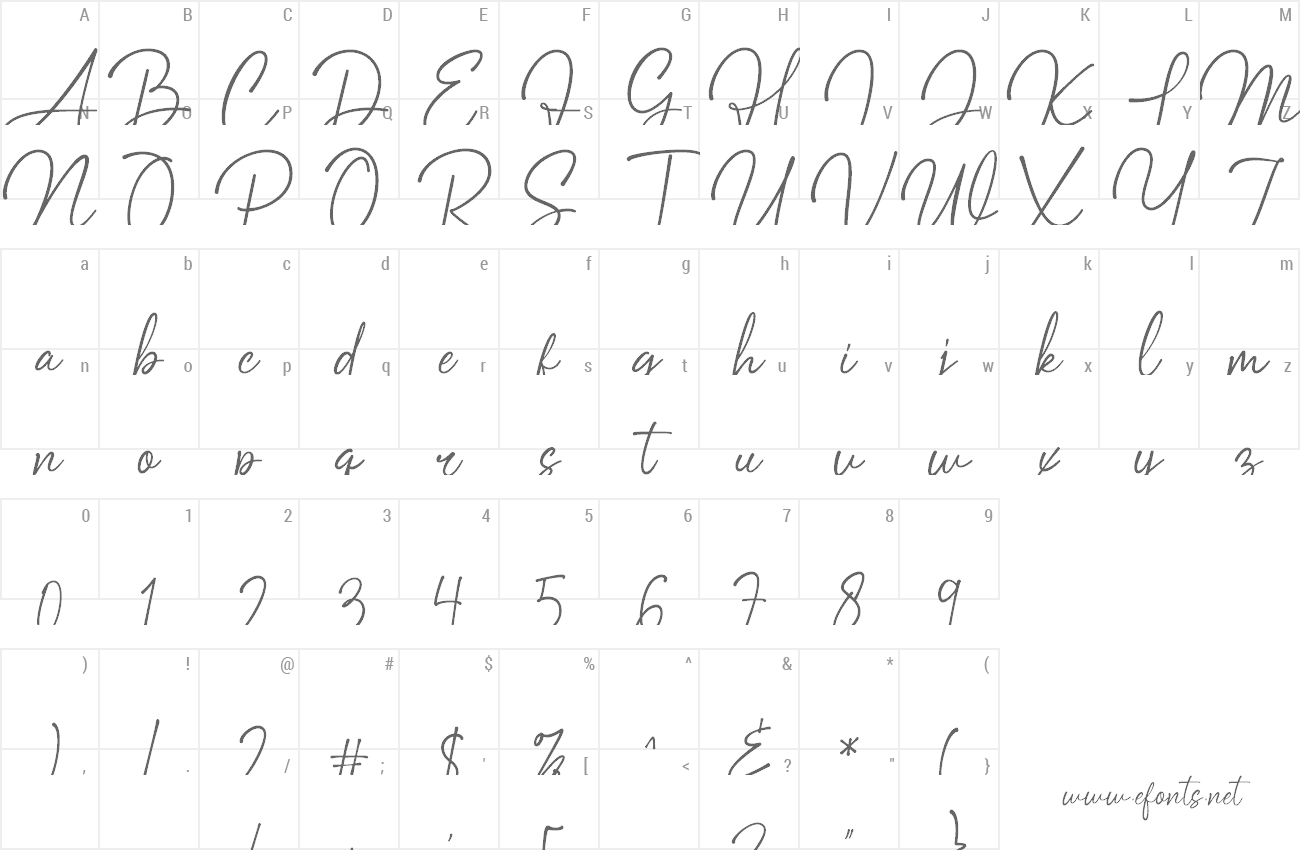 A B C D E F G H I J K L M
A B C D E F G H I J K L M
N O P Q R S T U V W X Y Z
N O P Q R S T U V W X Y Z
a b c d e f g h i j k l m
a b c d e f g h i j k l m
n o p q r s t u v w x y z
n o p q r s t u v w x y z
0 1 2 3 4 5 6 7 8 9
0 1 2 3 4 5 6 7 8 9
) ! @ # $ % ^ & * (
) ! # $ % ^ & * (
, . / ; ' [ < ? " }
/ ' [ ? " }
www.efonts.net